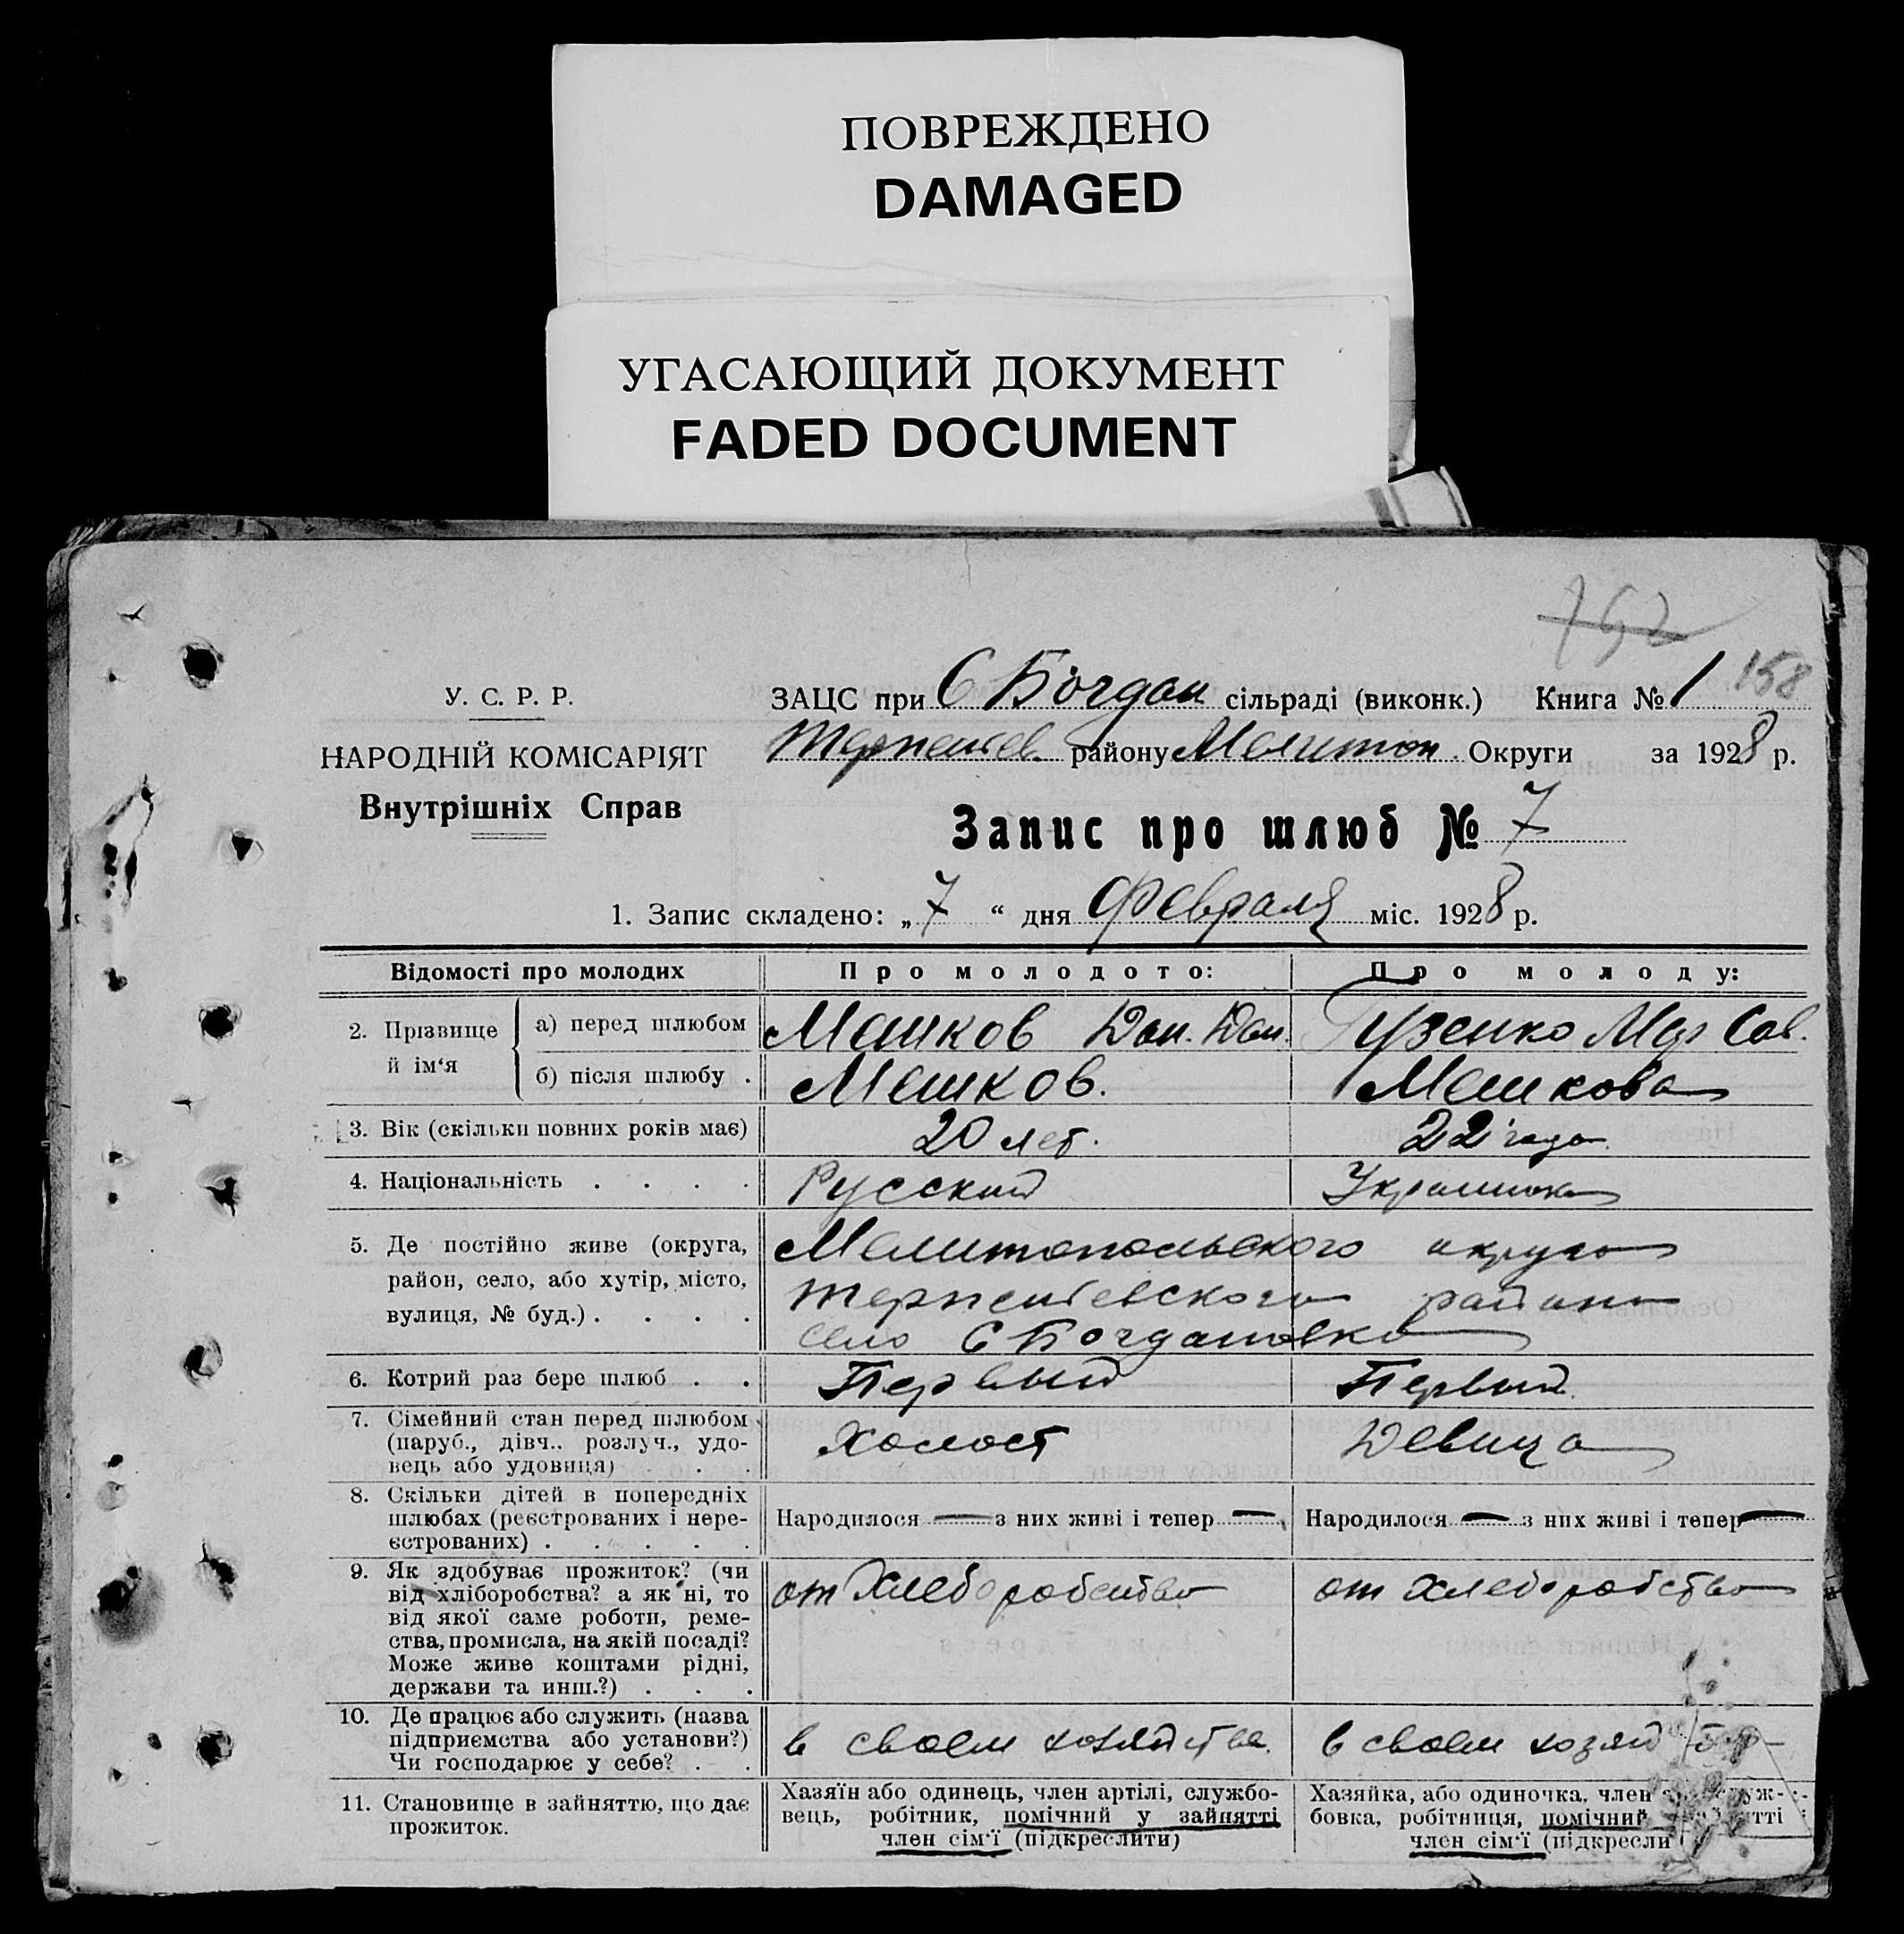 ПОВРЕЖДЕНО
DAMAGED
УГАСАЮЩИЙ ДОКУМЕНТ
FADED DOCUMENT
752
158
У. С. Р. Р.
НАРОДНІЙ КОМІСАРІЯТ
Внутрішніх Справ
ЗАЦС при С Богдан сільраді (виконк.) Книга № 1
Терпениев. району Мелитоп. Округи за 1928 р.
Запис про шлюб № 7
1. Запис складено: „7“ дня Февраля міс. 1928 р.
Відомості про молодих
Про молодого:
Про молоду:
2. Прізвище й ім‘я
а) перед шлюбом
Машков Дан. Дан.
Гузенко Мар Сав.
б) після шлюбу .
Машков.
Машкова
3. Вік (скільки повних років має)
20 лет.
22 года
4. Національність . . . .
Русский
Украинка
5. Де постійно живе (округа,
район, село, або хутір, місто,
вулиця, № буд.) . . . .
Мелитопольского округа
Терпениевского района
село С Богдановка
6. Котрий раз бере шлюб . .
Первый
Первый
7. Сімейний стан перед шлюбом
(паруб., дівч.. розлуч., удо-
вець або удовиця)
Холост
Девица
8. Скільки дітей в попередніх
шлюбах (реєстрованих і нере-
єстрованих) . . . . .
Народилося — з них живі і тепер —
Народилося — з них живі і тепер —
9. Як здобуває прожиток? (чи
від хліборобства? а як ні, то
від якої саме роботи, реме-
ства, промисла, на якій посаді?
Може живе коштами рідні,
держави та инш.?) . . .
от Хлеборобства
от хлеборобства
10. Де працює або служить (назва
підприємства або установи?)
Чи господарює у себе? . .
в своем хозяйстве.
в своем хозяй
11. Становище в зайняттю, що дає
прожиток.
Хазяїн або одинець, член артілі, службо-
вець, робітник, помічний у зайнятті
член сім‘ї (підкреслити)
Хазяйка, або одиночка, член
бовка, робітниця, помічний
член сім‘ї (підкресли